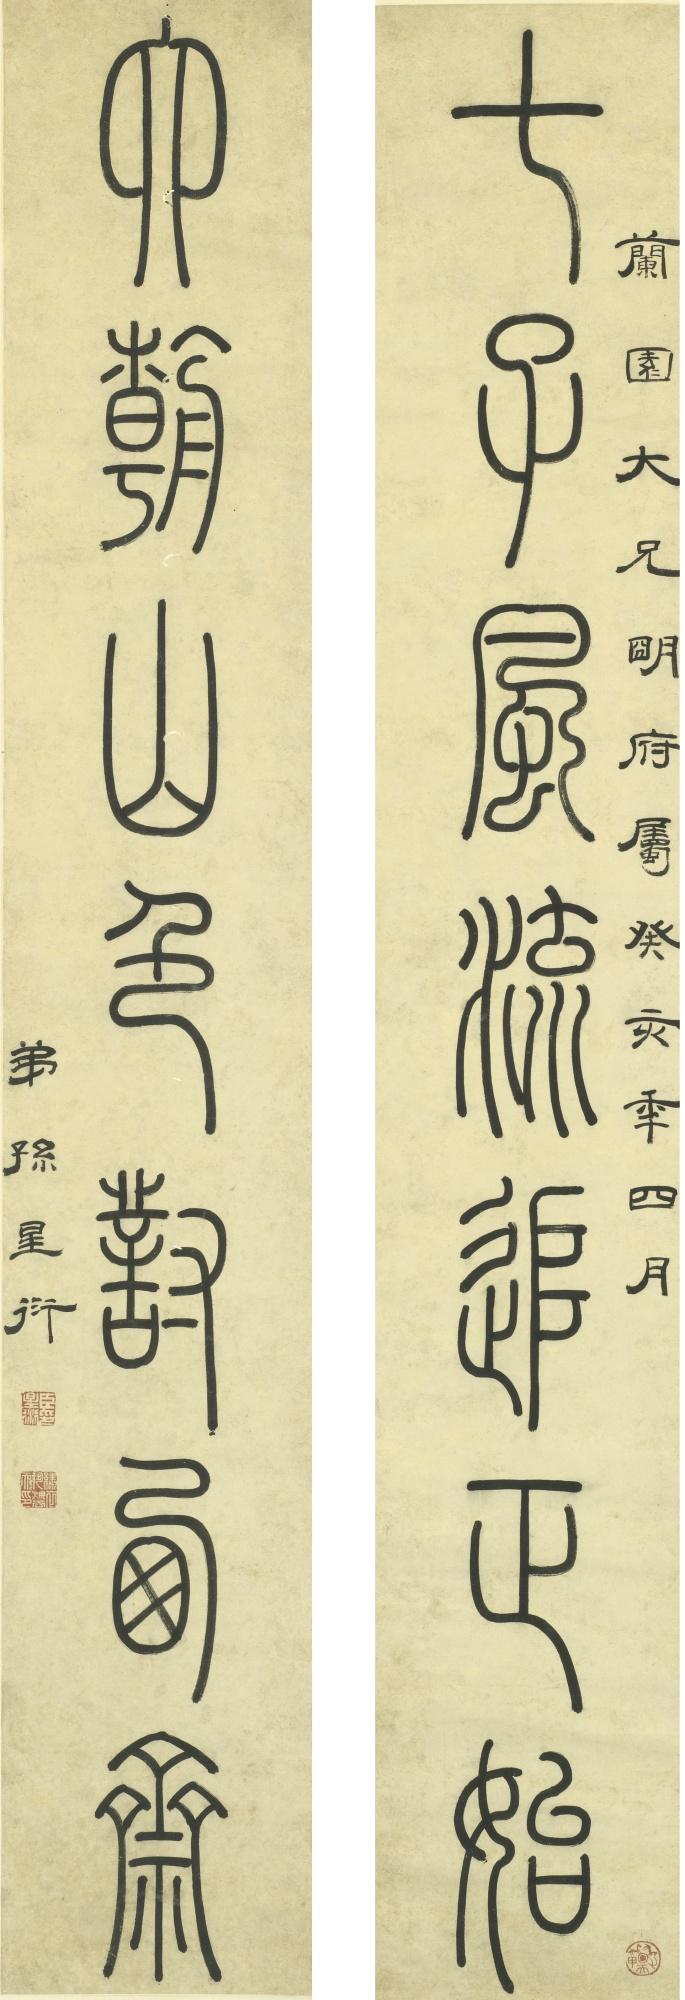 蘭園大兄明府屬癸亥年四月
七子風流追正始
六朝山色對齋
弟孫星衍